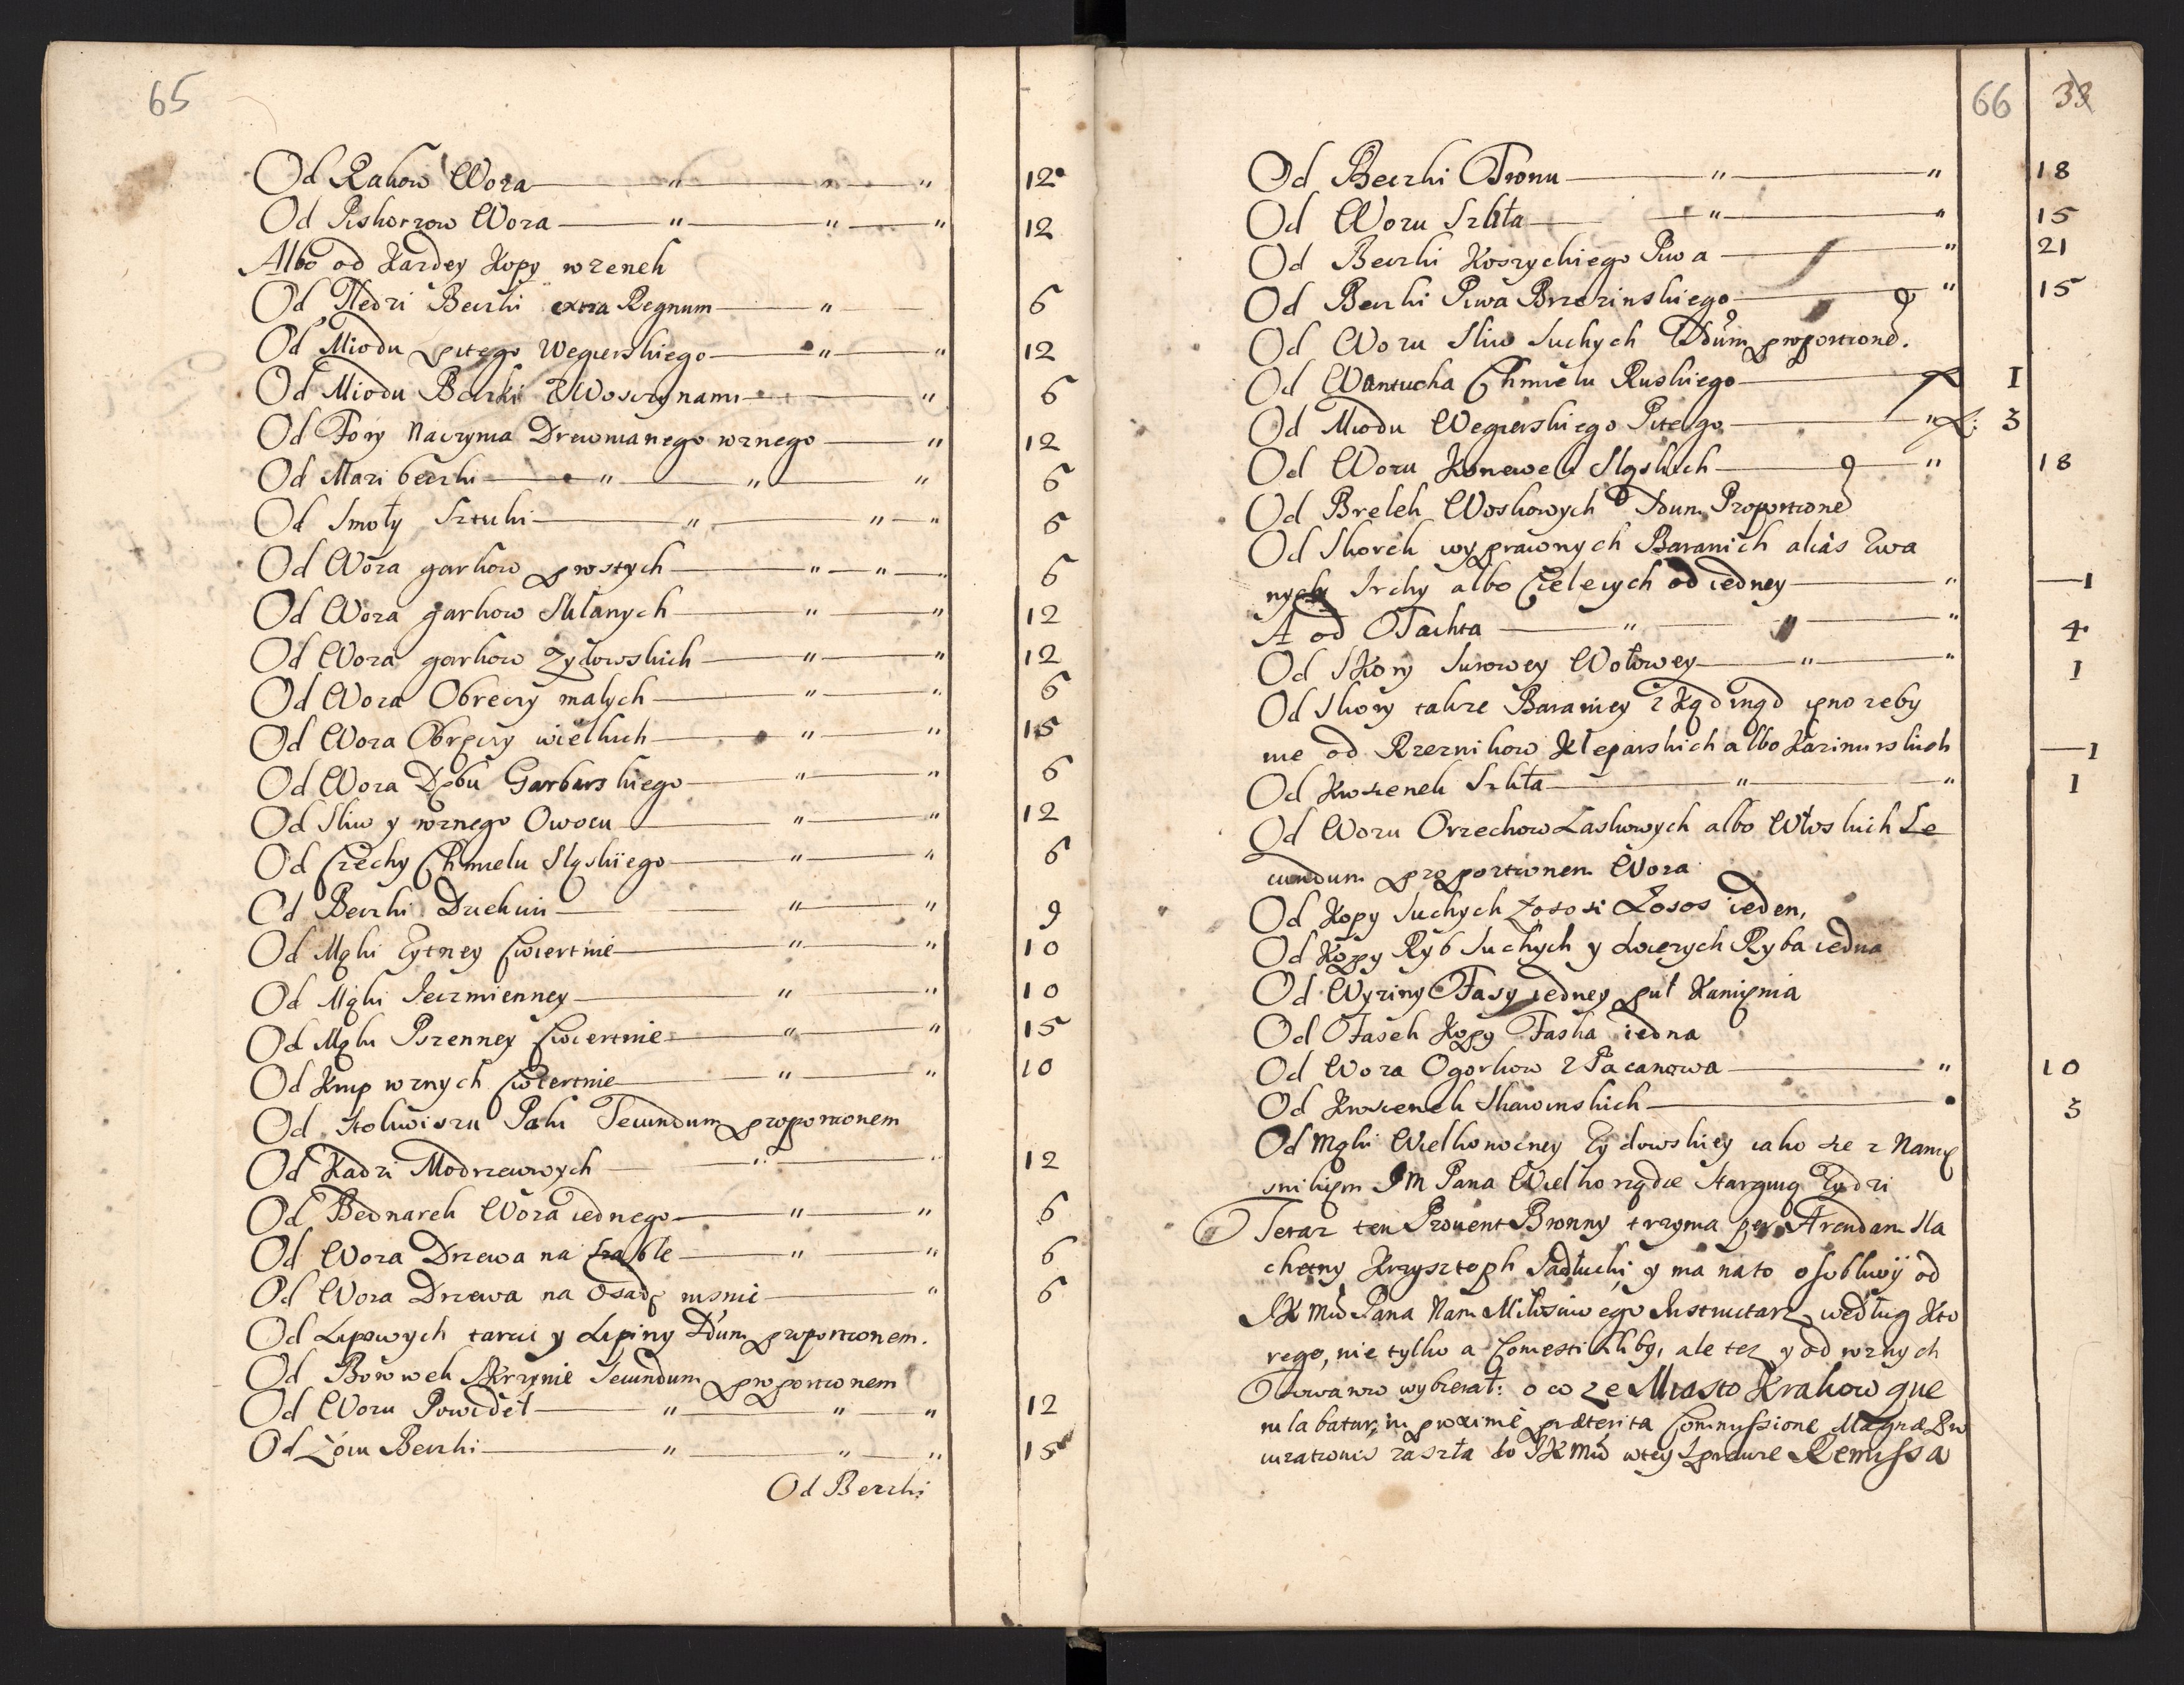 65
Od Rakow Woza " " " 12
Od Piskorzow Woza " " " 12
Albo od Kazdey Kopy w zenek
Od Sledzi Beczki extra Regnum " 6
Od Miodu pitego Wegierskiego " " 12
Od Miodu Beczki z Woszczynami " 6
Od Fory Naczynia Drewnianego roznego " 12
Od Mazi beczki " " " 6
Od Smoły Sztuki " " " 6
Od Woza garkow prostych " " " 6
Od Woza garkow Sklanych " " 12
Od Woza garkow Zydowskich " " 12
Od Woza Obreczy malych " " 6
Od Woza Obręczy wielkich " " 15
Od Woza Dębu Garbarskiego " " 6
Od Sliw y roznego Owocu " " 12
Od Czechy Chmielu Sląskiego " " 6
Od Beczki Duchwi " " 9
Od Mąki Zytney Cwiertnie " " 10
Od Mąki Jeczmienney " " 10
Od Mąki Pszenney Cwiertnie " " 15
Od Krup roznych Cwiertnie " " 10
Od Stokwiszu Paki Secundum proportionem
Od Kadzi Modrzewowych " " 12
Od Bednarek Woza iednego " " 6
Od Woza Drzewa na szable " " 6
Od Woza Drzewa na Osadę rusnic " 6
Od Lipowych tarcic y Lipiny Sdum proportionem.
Od Borowek Skrzynie Secundum proportionem
Od Wozu Powideł " " " 12
Od Łoiu Beczki " " " 15
Od Beczki
66 33
Od Beczki Tronu " " 18
Od Wozu Szkła " " 15
Od Beczki Koszyckiego Piwa " 21
Od Beczki Piwa Brzezinskiego " 15
Od Wozu Sliw Suchych Sdum proportione.
Od Wantucha Chmielu Ruskiego 1
Od Miodu Wegierskiego Pitego " 3
Od Wozu Konewek Sląskich " 18
Od Brelek Woskowych Sdum Proportione
Od Skorek wyprawnych Baranich alias Zwa
nych Irchy albo Cielecych od iedney " 1
A od Tachta " " " 4
Od Skory Surowey Wołowey " " 1
Od Skory takze Baraniey z Kądinąd ieno zeby
nie od Rzeznikow Kleparskich albo Kazimirskich 1
Od Krosienek Szkła " " 1
Od Wozu Orzechow Laskowych albo Włoskich Se
cundum proportionem Woza
Od Kopy Suchych Łososi Łosos ieden,
Od Kopy Ryb Suchych y swiezych Ryba iedna
Od Wyziny Fasy iedney puł Kamięnia
Od Fasek Kopy Faska iedna
Od Woza Ogorkow z Pacanowa " 10
Od Krosienek Skawinskich 3
Od Mąki Wielkonocney Zydowskiey iako sie z Namie
snikiem Im Pana Wielkorządce Starguią Zydzi
Teraz ten Prouent Bronny trzyma per Arendam Sla
chetny Krzysztoph Sadłucki, y ma na to osobliwÿ od
IK Mci Pana Nam Miłosciwego Instructarz, według Kto
rego, nie tylko a Comestibilibq, ale tez y od roznych
Towarow wybierał: o co ze Miasto Krakow que
rulabatur, in proximè præterita Commissione Magnæ Pro
curationis zaszła do IK Mci w tey Sprawie Remissa